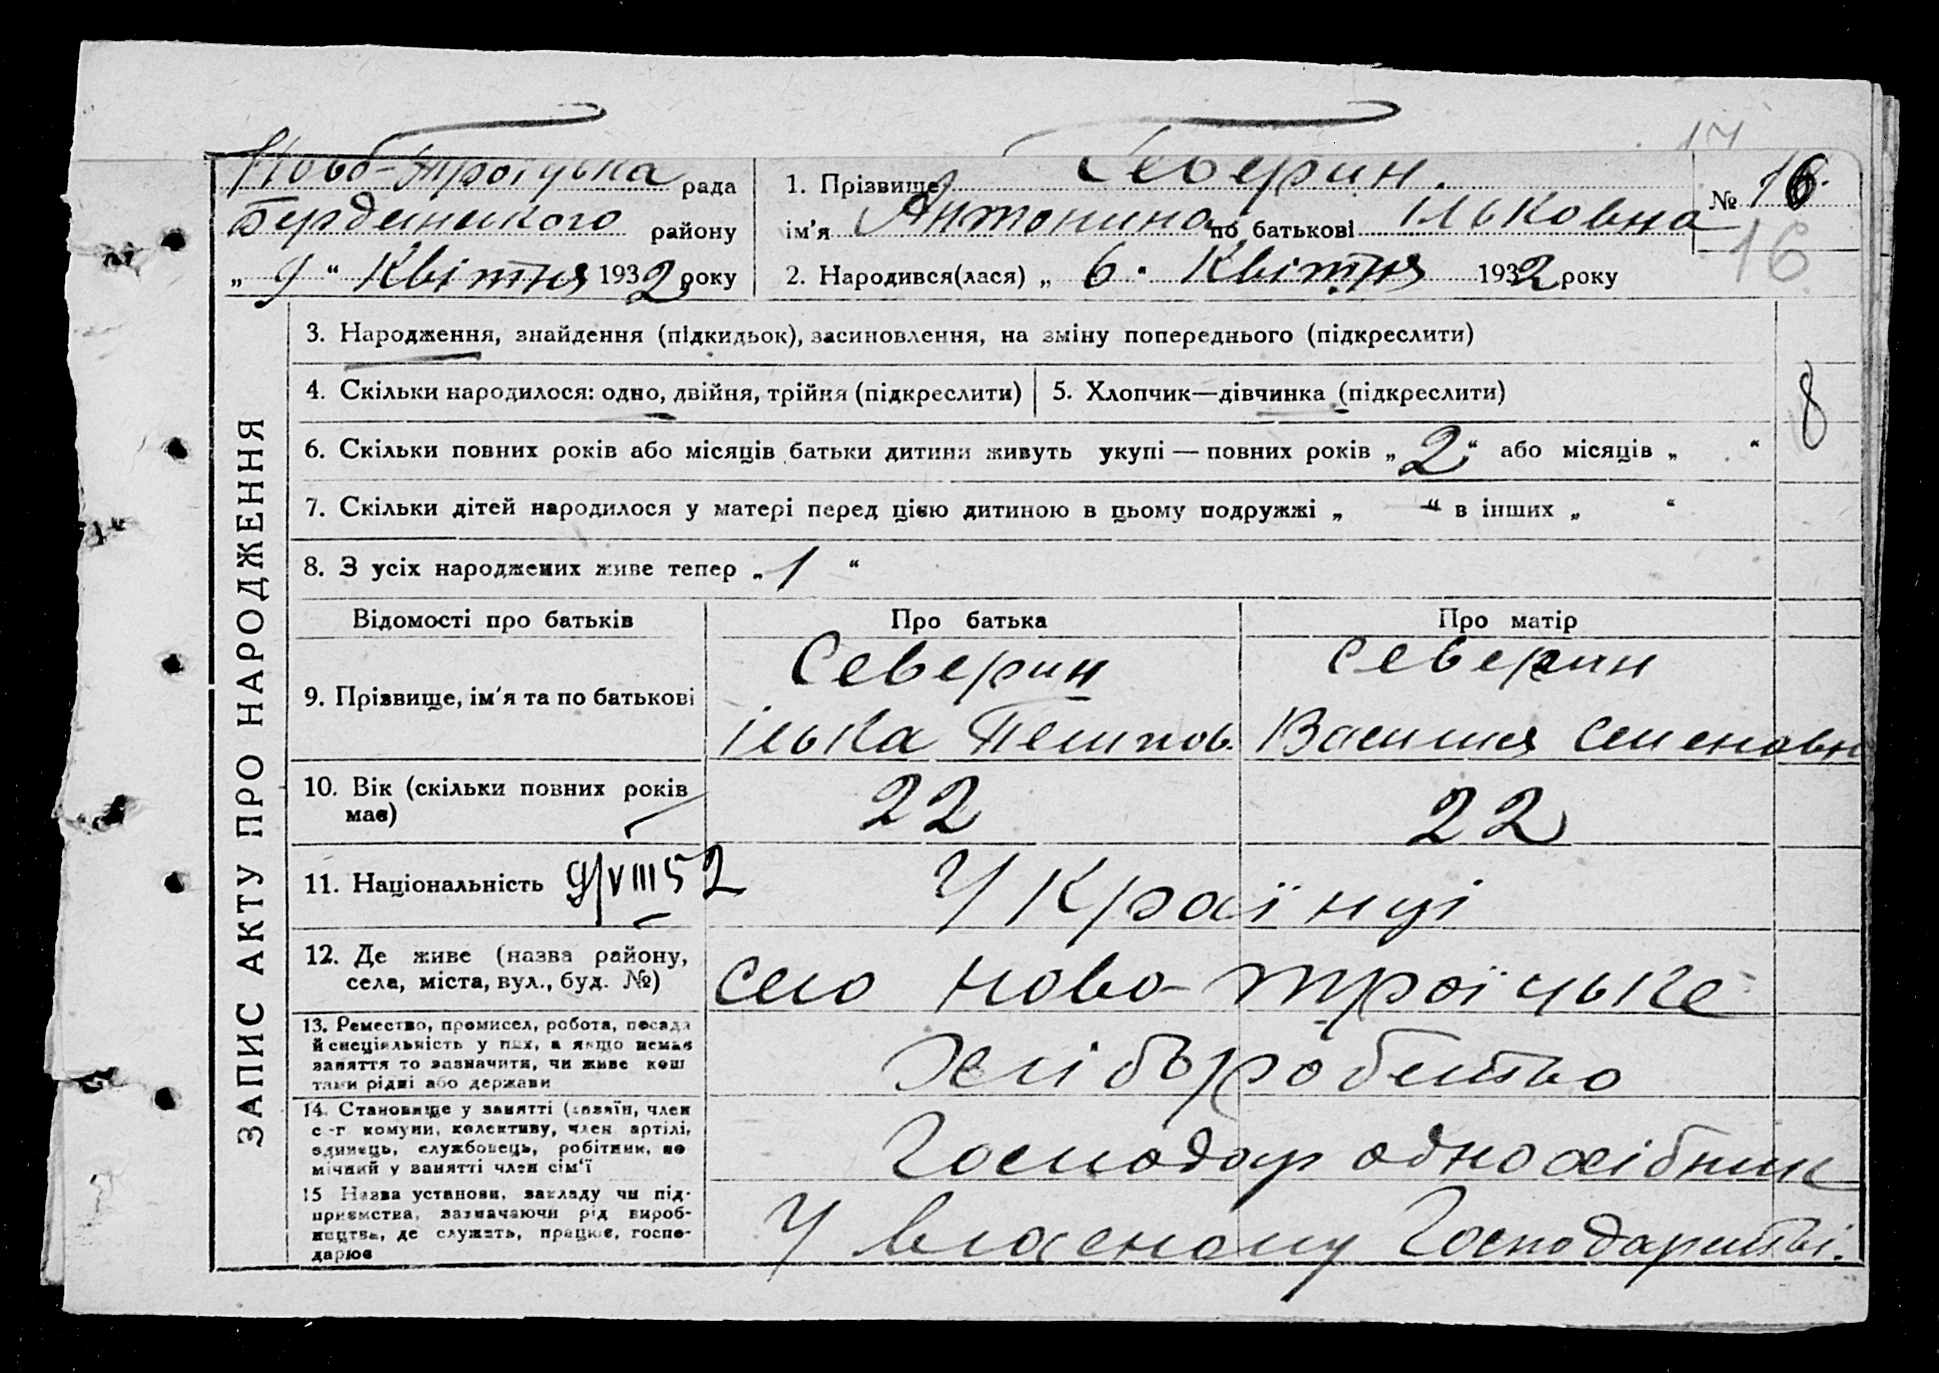 17
Ново-Троїцька рада
Бердянського району
„ 9 “ Квітня 1932 року
1. Прізвище Северин.
ім'я Антонина по батькові Ільковна
№ 16.
16
2. Народився(лася) „ 6 “ Квітня 1932 року
ЗАПИС АКТУ ПРО НАРОДЖЕННЯ
3. Народження, знайдення (підкидьок), засиновлення, на зміну попереднього (підкреслити)
4. Скільки народилося: одно, двійня, трійня (підкреслити)
5. Хлопчик—дівчинка (підкреслити)
8
6. Скільки повних років або місяців батьки дитини живуть укупі — повних років „ 2 “ або місяців „ “
7. Скільки дітей народилося у матері перед цією дитиною в цьому подружжі „ “ в інших „ “
8. З усіх народжених живе тепер „ 1 “
Відомості про батьків
Про батька
Про матір
9. Прізвище, ім'я та по батькові
Северин
Ілька
Северин
Василися Семеновн
10. Вік (скільки повних років
має)
22
22
11. Національність 9/VIII 52
Українці
12. Де живе (назва району,
села, міста, вул., буд. №)
село Ново-Троїцьке
13. Ремество, промисел, робота, посада
й спеціяльність у них, а якщо немає
заняття то зазначити, чи живе кош
тами рідні або держави
Хлібъробство
14. Становище у занятті (хазяїн, член
с.-г комуни, колективу, член артілі,
одинець, службовець, робітник, по
мічний у занятті член сім'ї
Господар одноосібник
15 Назва установи, закладу чи під-
приємства, зазначаючи рід вироб-
ництва, де служить, працює, госпо-
дарює
У власному Господарстві.